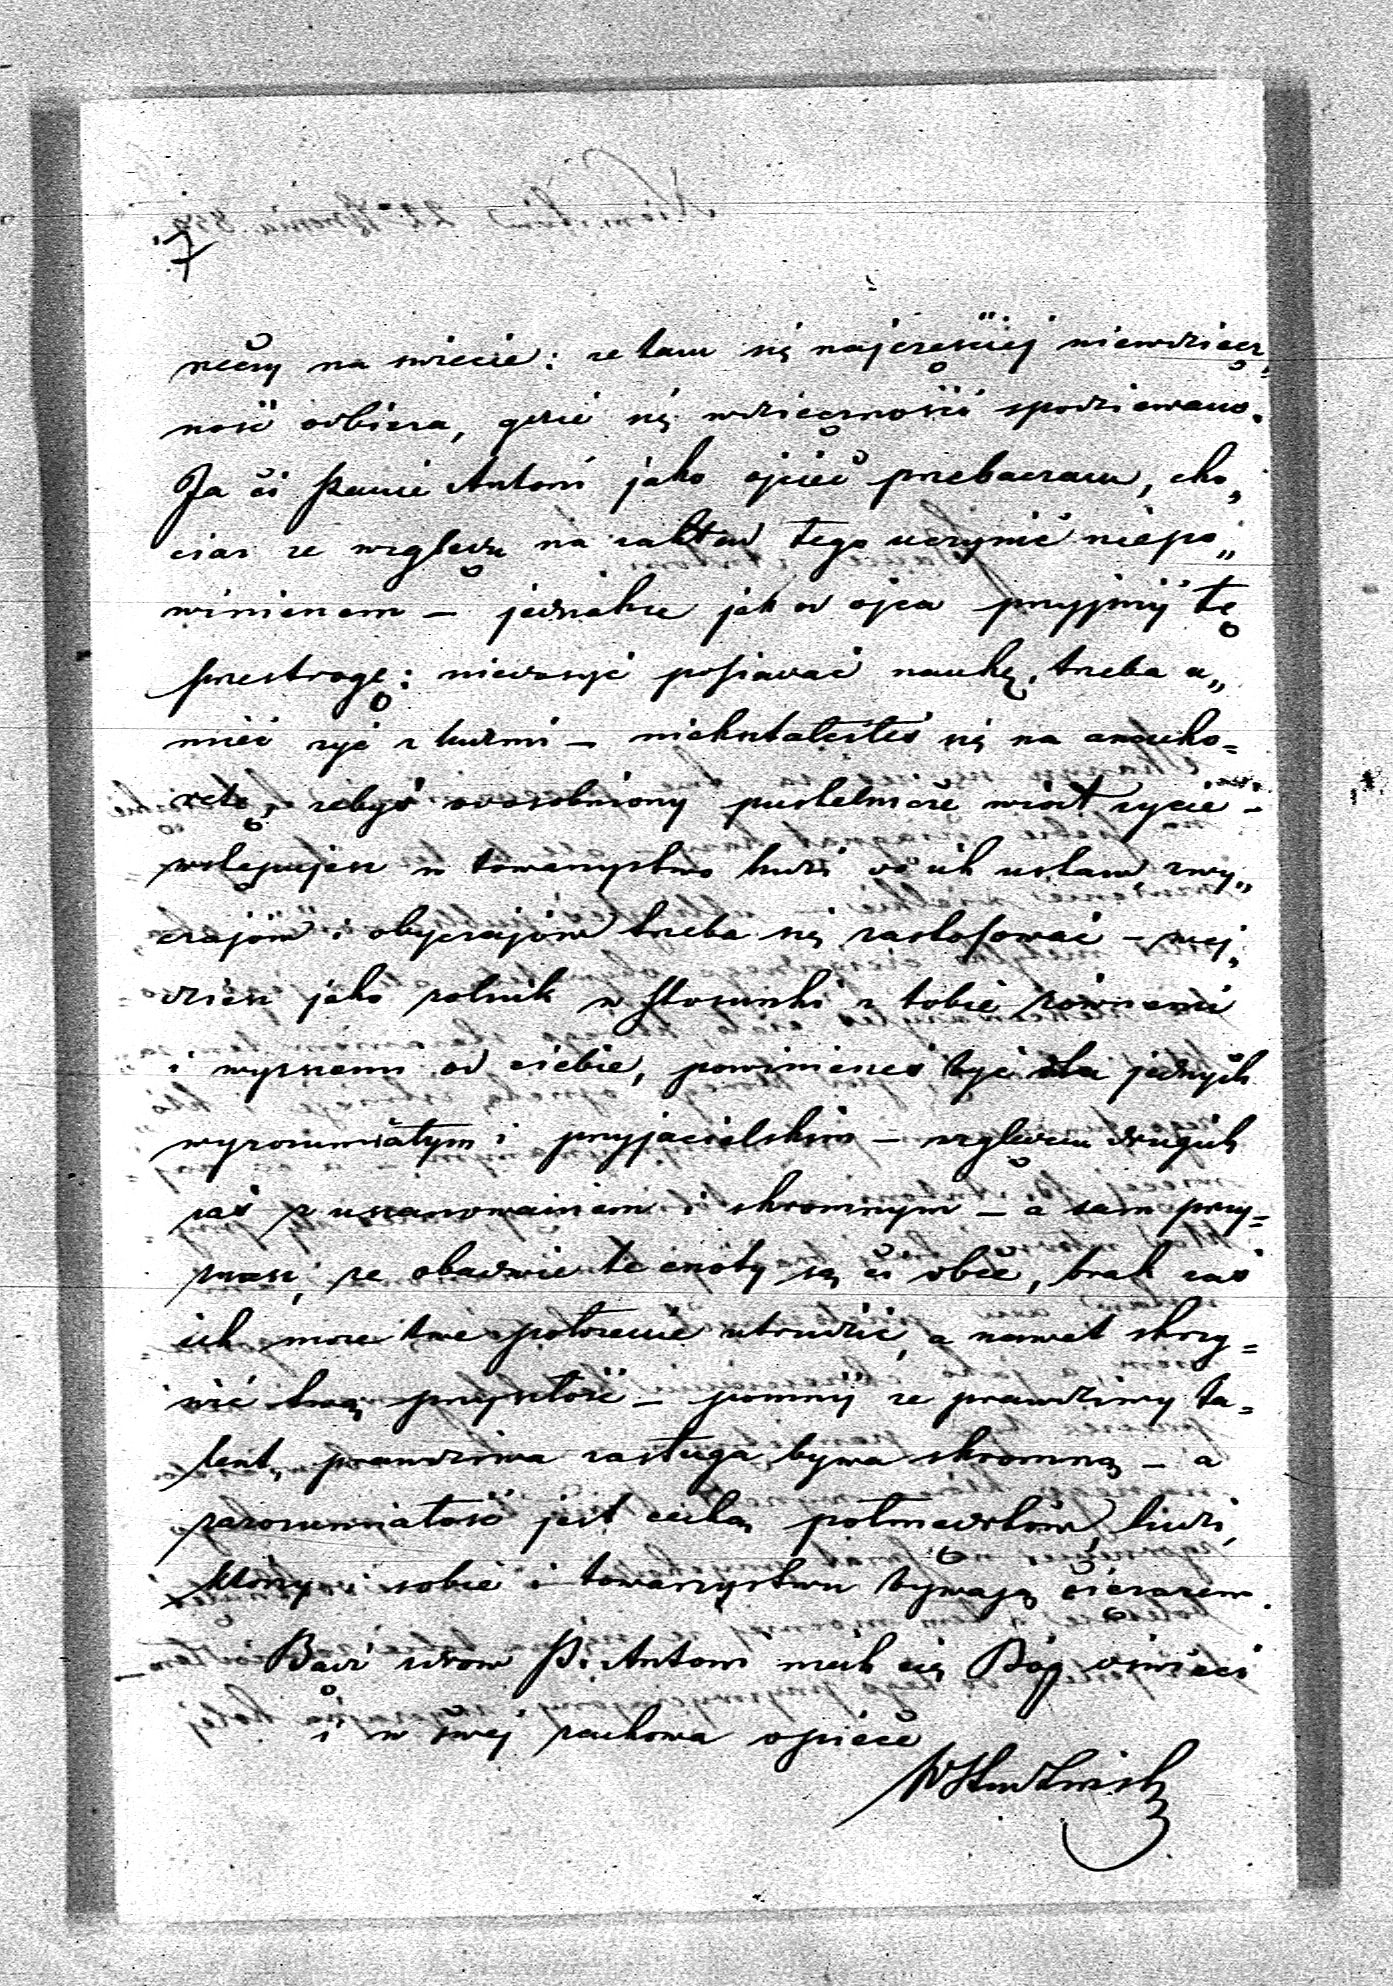 7
rzeczy na swiecie: ze tam się najczęsciej niewdzięcz„
nosć odbiera, gdzie się wdzięczności spodziewano.
Ja ci Panie Antoni jako ojciec przebaczam, cho„
ciaz ze względu na zakład tego uczynić niepo„
winienem – jednakże jak od ojca przyjmij tę
przestrogę: niedosyć posiadać naukę, trzeba u„
mieć zyć z ludzmi – niekształciłeś się na anacho=
retę, zebyś odosobniony pustelnicze wiódł zycie –
wstępujesz w towarzystwo ludzi do ich ustaw zwy„
czajów i obyczajów trzeba się zastosować – wej„
dziesz jako rolnik w stosunki z tobie równemi
i wyzszemi od ciebie, powinieneś być dla jednych
wyrozumiałym i przyjacielskim – względem drugich
zaś z uszanowaniem i skromnym – a sam przy=
znasz, ze obadwie te cnoty są ci obce, brak zaś
ich moze twe położenie utrudzić, a nawet skrzy=
wić twą przyszłość – pomnij ze prawdziwy ta=
lent, prawdziwa zasługa bywa skromną – a
zarozumiałość jest cechą półmędrków ludzi,
którzy i sobie i towarzystwu bywają ciężarem.
Bądź zdrow P. Antoni niech cię Bóg oświeci
i w swej zachowa opiece